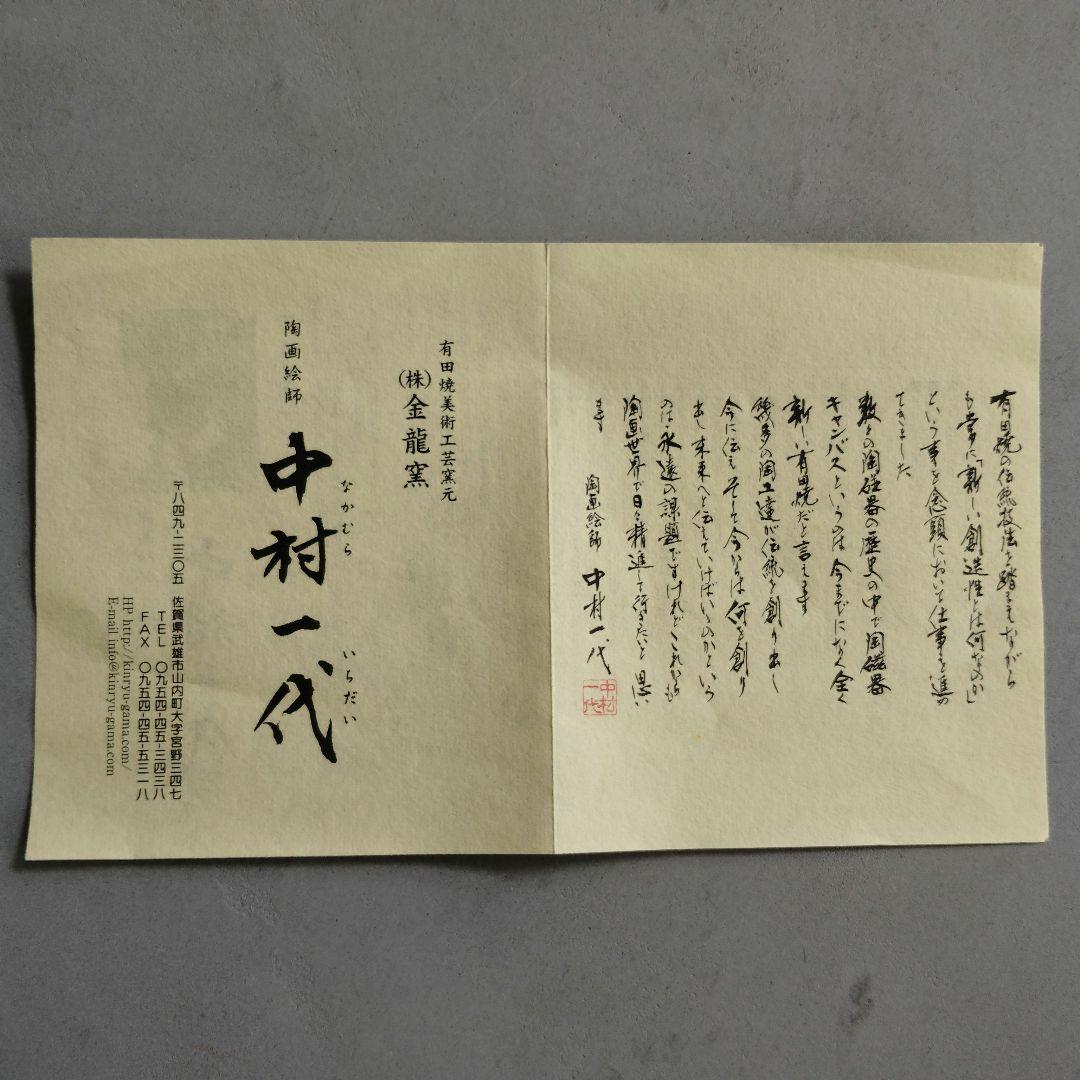 有田焼の伝統技法を踏まえながら
も常に「新しい創造性とは何なのか」
という事を念頭において仕事を進め
てきました
数々の陶磁器の歴史の中で陶磁器
キャンバスというのは今までになく全く
新しい有田焼だと言えます
幾多の陶工達が伝統を創り出し
今に伝え そして今からは何を創り
出し未来へと伝えていけばいいのかという
のは永遠の課題ですけれどこれからも
陶画世界で日々精進して行きたいと思い
ます
陶画絵師 中村一代
有田焼美術工芸窯元
(株)金龍窯
なかむら いちだい
陶画絵師 中村一代
〒八四九-二三〇五 佐賀県武雄市山内町大字宮野三四七
TEL 〇九五四-四五-三四三八
FAX 〇九五四-四五-五三一八
HP http://kinryu-gama.com/
E-mail info@kinryu-gama.com